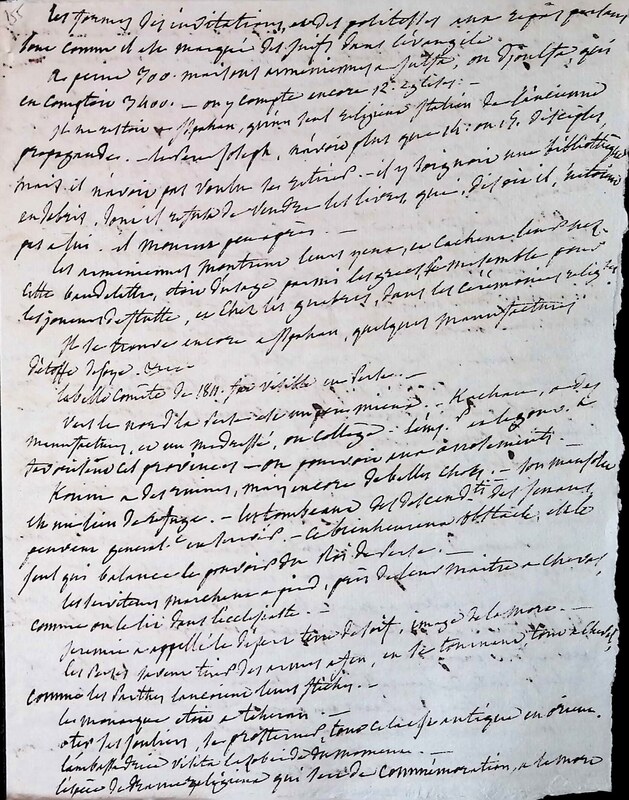 155
les formes des invitations, et des politesses aux repas
tout comme il est marqué des juifs dans l'évangile.
a peine 300. maisons arméniennes a julfa, ou Djoulfa, qui
en comptoit 3400. — on y compte encore 12. églises —
Il ne restoit a Ispahan, qu'un seul religieux italien de l'ancienne
propagande. — le père joseph, n'avoit plus que 14. ou 15. disciples
mais il n'avoit pas voulu se retirer — il y soignoit une bibliothèque
en débris, dont il refusa de vendre les livres, que, disoit il, n'étoient
pas a lui. il mourut peu après. —
les arméniennes montrent leurs yeux, et cachent leur nez.
cette bandelette, étoit d'usage parmi les grecs, ce me semble, pour
les joueurs de flutte, et chez les guebres, dans les cérémonies relig.ses
Il se trouve encore a Ispahan, quelques manufactures
d'étoffe de soye.
la belle Comète de 1811. fut visible en Perse. —
vers le nord la Perse est un peu mieux. — Kachan, a des
manufactures, et un medressé, ou collège.
favorisent ces provinces — on pourvoit aux arrosements. —
Koum a des ruines, mais encore de belles choses. — son mausolée
est un lieu de refuge. — les tombeaux des descend.ts des Imans,
peuvent general.t en servir. — ce bienheureux obstacle, est le
seul qui balance le pouvoir du Roi de Perse. —
les serviteurs marchent a pied, près de leur maitre a cheval,
comme on le lit dans l'ecclesiaste. —
jeremie a appellé le désert terre de soif, image de la mort. —
les Perses savent tirer des armes a feu, en se tournant tout a cheval,
comme les Parthes lancoient leurs flèches. —
le monarque étoit a teheran. —
oter ses souliers, se prosterner, tout cela est antique en orient.
l'ambassadrice visita
l'espèce de drame religieux qui sert de commémoration, a la mort